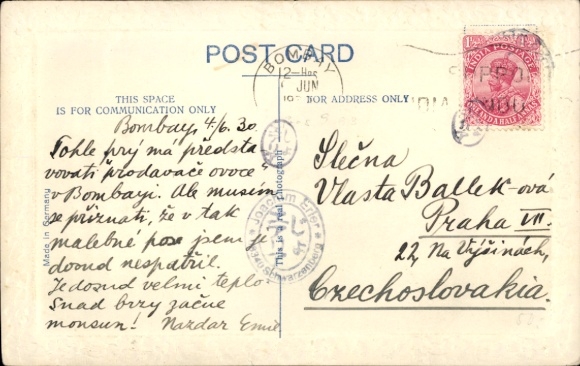 POST CARD
THIS SPACE
IS FOR COMMUNICATION ONLY
FOR ADDRESS ONLY
BOMBAY
12-Hrs
JUN
INDIA POSTAGE
Made in Germany
This is a real photograph
Joachim Erler
Schwarzenberg
Bombay, 4./6. 30.
Tohle prý má předsta
vovati „prodavače ovoce“
v Bombayi. Ale musím
se přiznati, že v tak
malebné pose jsem je
dosud nespatřil.
Je dosud velmi teplo.
Snad brzy začne
monsun! Nazdar Emil
Slečna
Vlasta Ballek-ová
Praha VII.
22, Na Výšinách,
Czechoslovakia.